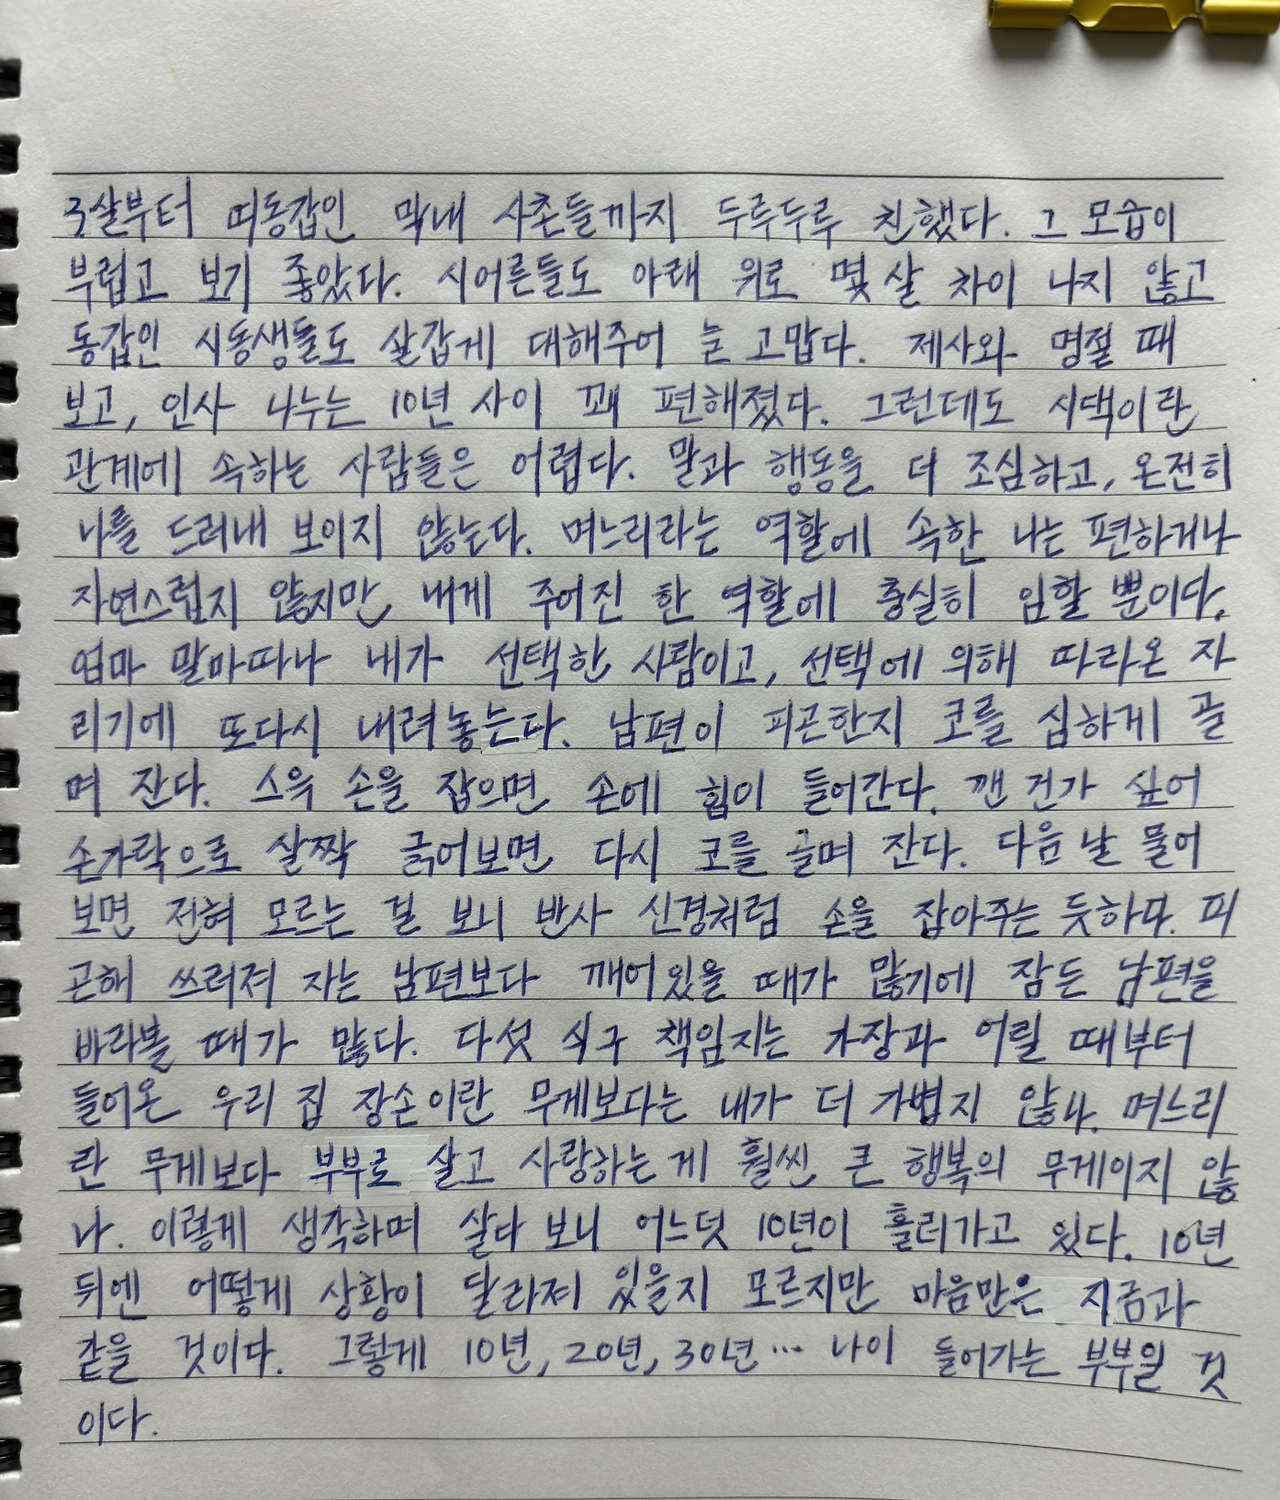 3살부터 띠동갑인 막내 사촌들까지 두루두루 친했다. 그 모습이
부럽고 보기 좋았다. 시어른들도 아래 위로 몇 살 차이 나지 않고
동갑인 시동생들도 살갑게 대해주어 늘 고맙다. 제사와 명절 때
보고, 인사 나누는 10년 사이 꽤 편해졌다. 그런데도 시댁이란
관계에 속하는 사람들은 어렵다. 말과 행동을 더 조심하고, 온전히
나를 드러내 보이지 않는다. 며느리라는 역할에 속한 나는 편하거나
자연스럽지 않지만, 내게 주어진 한 역할에 충실히 임할 뿐이다.
엄마 말마따나 내가 선택한 사람이고, 선택에 의해 따라온 자
리기에 또다시 내려놓는다. 남편이 피곤한지 코를 심하게 골
며 잔다. 스윽 손을 잡으면 손에 힘이 들어간다. 깬 건가 싶어
손가락으로 살짝 긁어보면 다시 코를 골며 잔다. 다음 날 물어
보면 전혀 모르는 걸 보니 반사 신경처럼 손을 잡아주는 듯하다. 피
곤해 쓰러져 자는 남편보다 깨어있을 때가 많기에 잠든 남편을
바라볼 때가 많다. 다섯 식구 책임지는 가장과 어릴 때부터
들어온 우리 집 장손이란 무게보다는 내가 더 가볍지 않나. 며느리
란 무게보다 부부로 살고 사랑하는 게 훨씬 큰 행복의 무게이지 않
나. 이렇게 생각하며 살다 보니 어느덧 10년이 흘러가고 있다. 10년
뒤엔 어떻게 상황이 달라져 있을지 모르지만 마음만은 지금과
같을 것이다. 그렇게 10년, 20년, 30년… 나이 들어가는 부부일 것
이다.